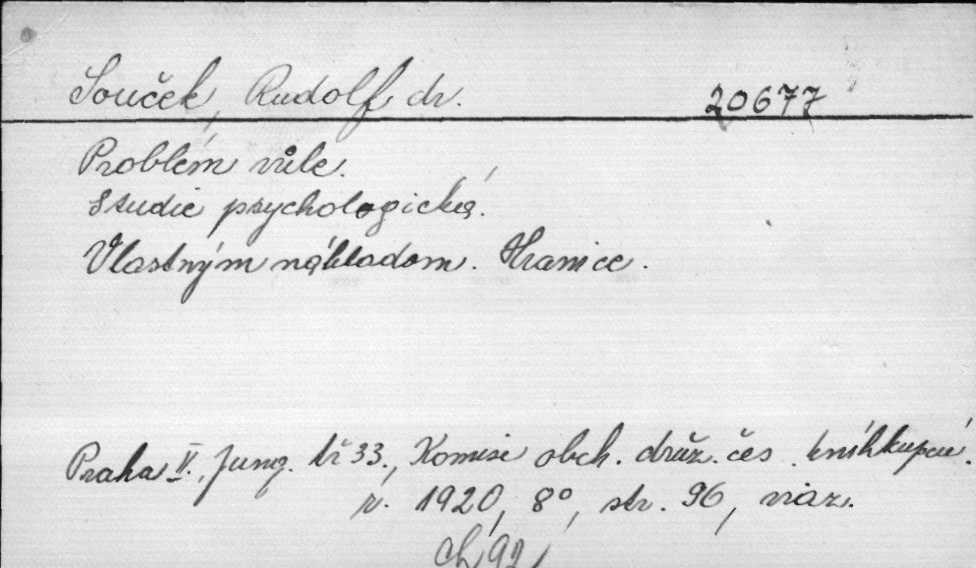 Souček, Rudolf dr. 20677
Problém vůle.
Studie psychologická.
Vlastným nákladom. Hranice.
Praha II., Jung. tř 33., Komise obch. druž. čes. kníhkupcú.
r. 1920, 8°, str. 96, viaz.
Ch 92